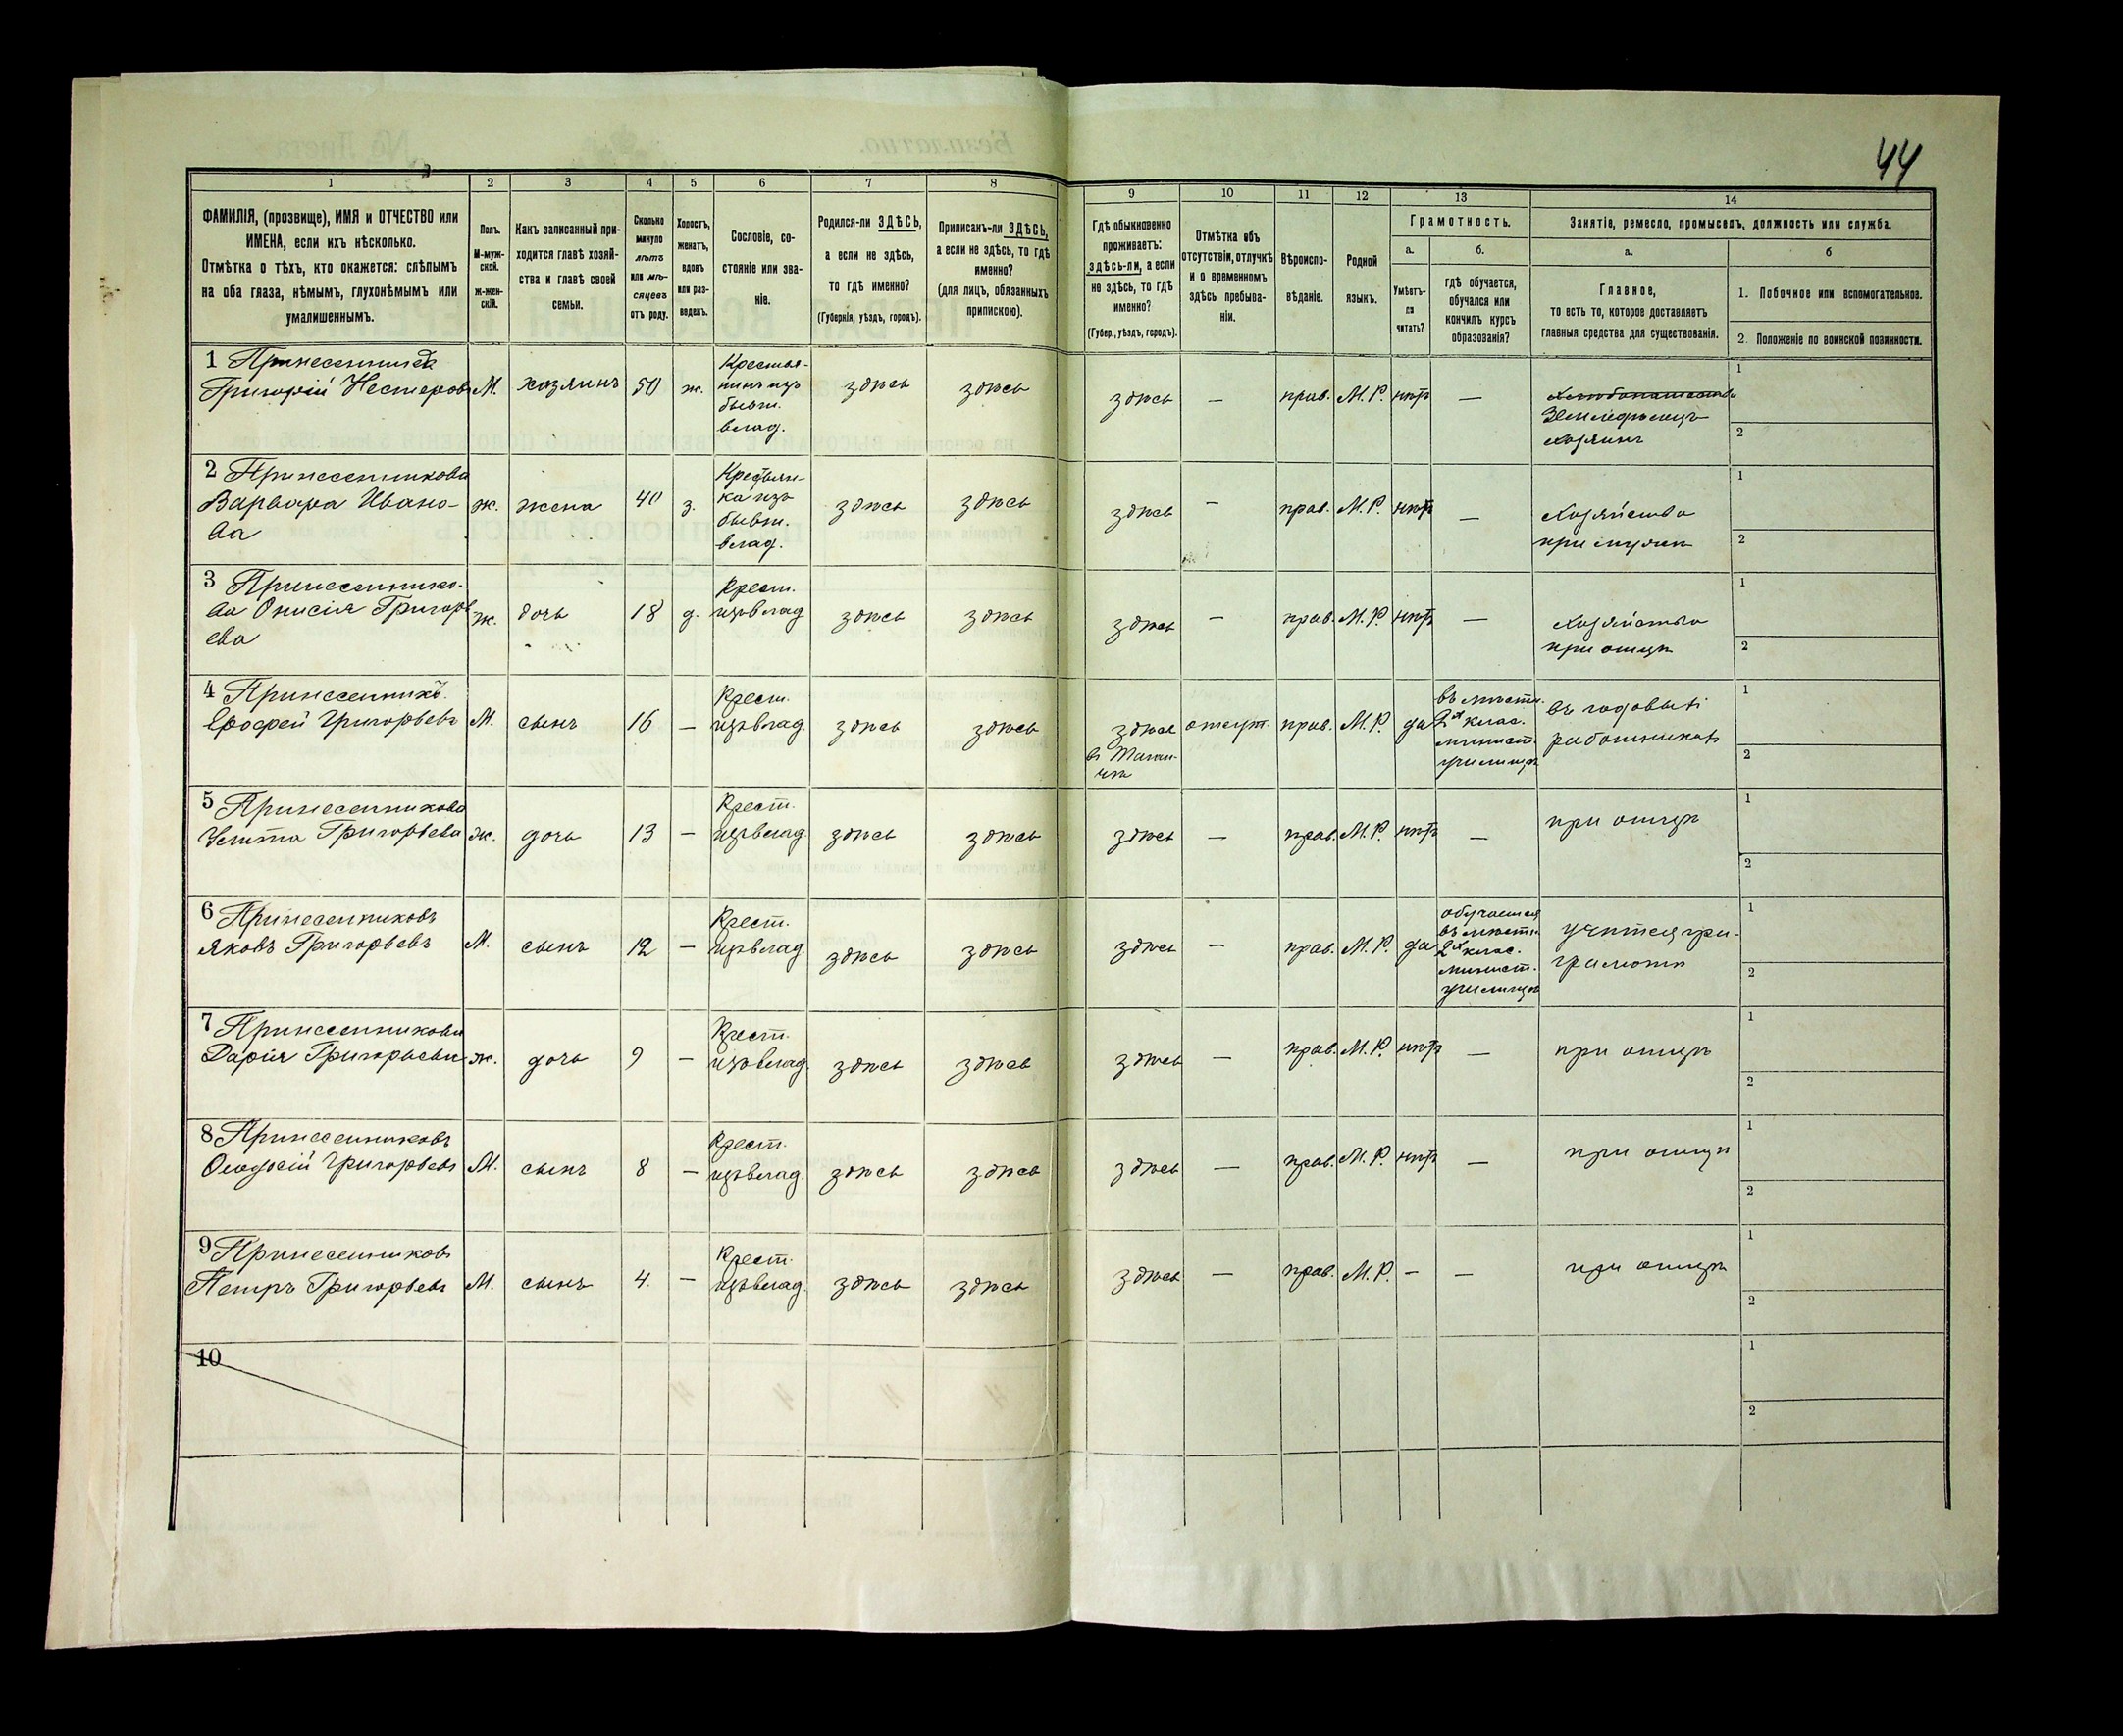 44
1
2
3
4
5
6
7
8
9
10
11
12
13
14
ФАМИЛІЯ, (прозвище), ИМЯ и ОТЧЕСТВО или
ИМЕНА, если ихъ нѣсколько.
Отмѣтка о тѣхъ, кто окажется: слѣпымъ
на оба глаза, нѣмымъ, глухонѣмымъ или
умалишеннымъ.
Полъ.
М-муж-
ской.
ж-жен-
скій.
Какъ записанный при-
ходится главѣ хозяй-
ства и главѣ своей
семьи.
Сколько
минуло
лѣтъ
или мѣ-
сяцевъ
отъ роду.
Холостъ,
женатъ,
вдовъ
или раз-
веденъ.
Сословіе, со-
стояніе или зва-
ніе.
Родился-ли ЗДѢСЬ,
а если не здѣсь,
то гдѣ именно?
(Губернія, уѣздъ, городъ).
Приписанъ-ли ЗДѢСЬ,
а если не здѣсь, то гдѣ
именно?
(для лицъ, обязанныхъ
припискою).
Гдѣ обыкновенно
проживаетъ:
здѣсь-ли, а если
не здѣсь, то гдѣ
именно?
(Губер., уѣздъ, городъ).
Отмѣтка объ
отсутствіи, отлучкѣ
и о временномъ
здѣсь пребыва-
ніи.
Вѣроиспо-
вѣданіе.
Родной
языкъ.
Грамотность.
а.
Умѣетъ-
ли
читать?
б.
гдѣ обучается,
обучался или
кончилъ курсъ
образованія?
Занятіе, ремесло, промыселъ, должность или служба.
а.
Главное,
то есть то, которое доставляетъ
главныя средства для существованія.
б
1. Побочное или вспомогательное.
2. Положеніе по воинской повинности.
1
Григорій Нестеровъ М. хозяинъ 50 ж. Крестья-
нинъ изъ
бывш.
влад. здѣсь здѣсь здѣсь — прав. М. Р. нѣтъ —
Земледѣлецъ
хозяинъ
1
2
2 Принесенникова
Варвара Ивано-
ва ж. жена 40 з. Крестьян-
ка изъ
бывш.
влад. здѣсь здѣсь здѣсь — прав. М. Р. нѣтъ — Хозяйство
при мужѣ
1
2
3 Принесеннико-
ва Онисія Григорь
ева ж. дочь 18 д. Крест.
изъ влад здѣсь здѣсь здѣсь — прав. М. Р. нѣтъ — Хозяйство
при отцѣ
1
2
4
Ерофей Григорьевъ М. сынъ 16 — Крест.
изъ влад. здѣсь здѣсь здѣсь
отсут. прав. М. Р. да въ мѣстн.
2х клас.
минист.
училищѣ въ годовыхъ
работникахъ
1
2
5 Принесенникова
Григорьева ж. дочь 13 — Крест.
изъ влад. здѣсь здѣсь здѣсь — прав. М. Р. нѣтъ — при отцѣ
1
2
6 Принесенниковъ
Яковъ Григорьевъ М. сынъ 12 — Крест.
изъ влад. здѣсь здѣсь здѣсь — прав. М. Р. да обучается
въ мѣстн.
2х клас.
минист.
училищѣ учится гра-
грамоты
1
2
7 Принесенникова
Дарія Григорьева ж. дочь 9 — Крест.
изъ влад. здѣсь здѣсь здѣсь — прав. М. Р. нѣтъ — при отцѣ
1
2
8 Принесенниковъ
Ѳеодосій Григорьевъ М. сынъ 8 — Крест.
изъ влад. здѣсь здѣсь здѣсь — прав. М. Р. нѣтъ — при отцѣ
1
2
9 Принесенниковъ
Петръ Григорьевъ М. сынъ 4. — Крест.
изъ влад. здѣсь здѣсь здѣсь — прав. М. Р. — — при отцѣ
1
2
10
1
2